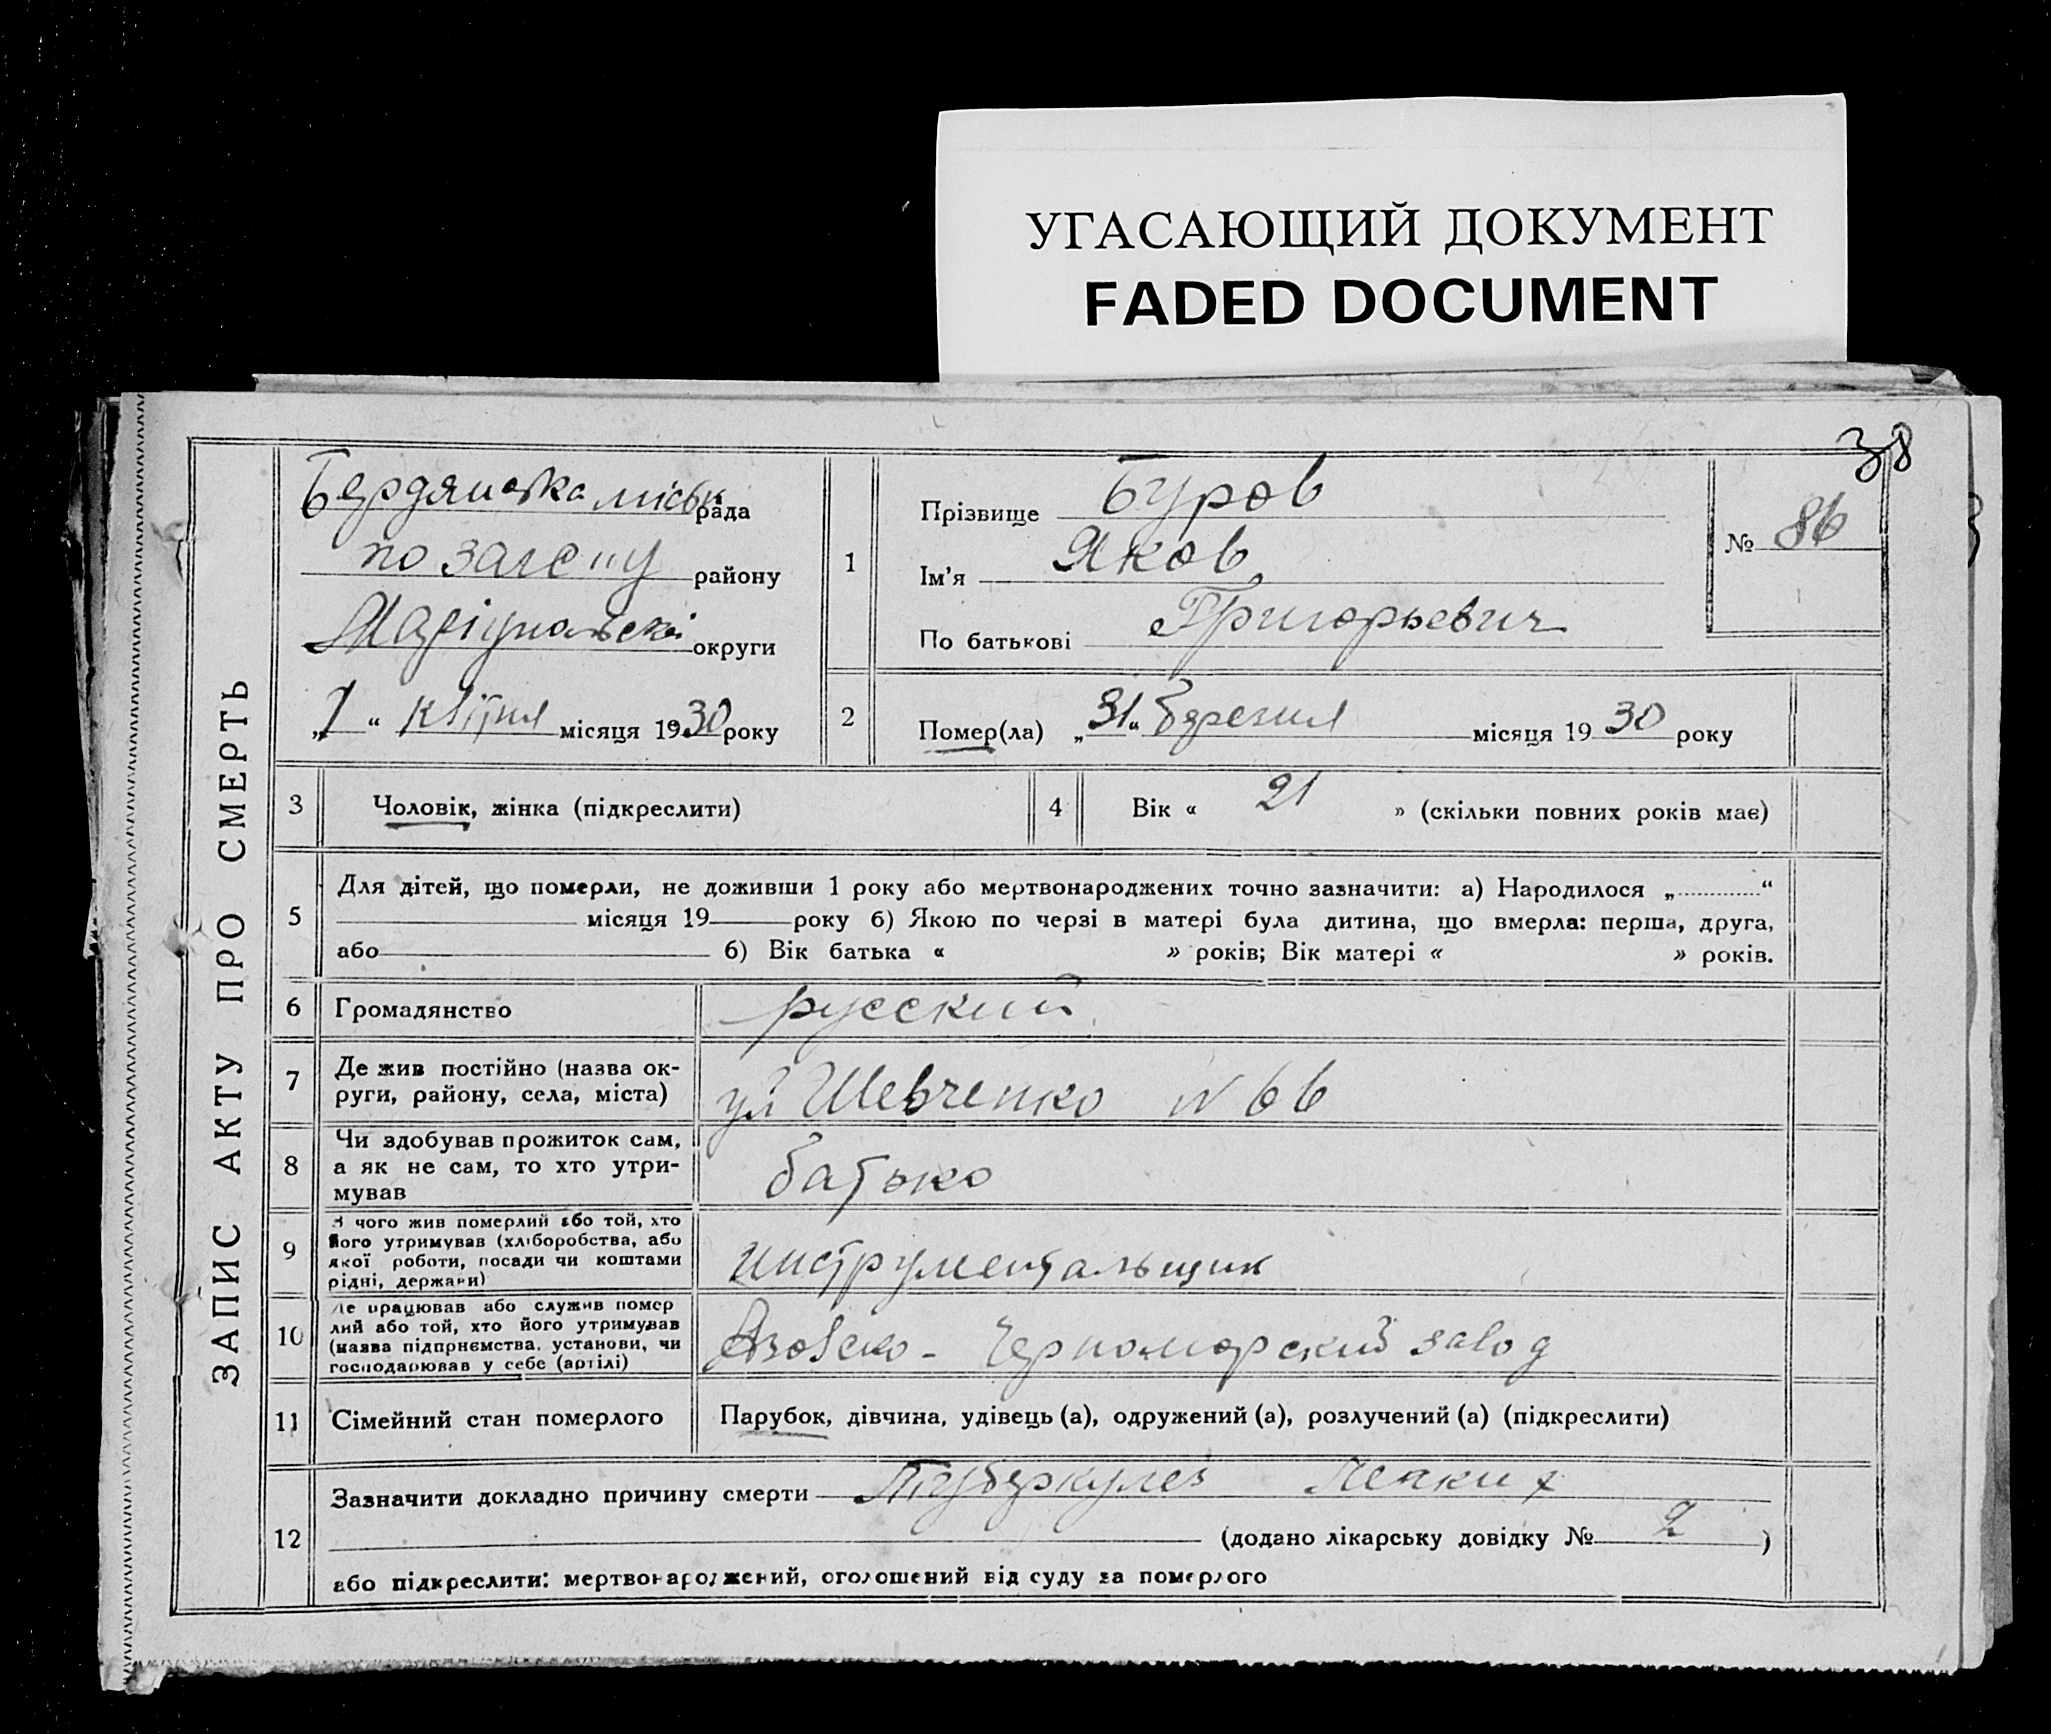 УГАСАЮЩИЙ ДОКУМЕНТ
FADED DOCUMENT
38
ЗАПИС АКТУ ПРО СМЕРТЬ
Бердянська міськ рада
по загспу району
Маріупольскі округи
„1“ квітня місяця 1930 року
1
Прізвище Буров
Ім'я Яков
По батькові Григорьевич
№ 86
2
Помер(ла) „31“ березня місяця 1930 року
3 Чоловік, жінка (підкреслити)
4 Вік « 21 » (скільки повних років має)
5
Для дітей, що померли, не доживши 1 року або мертвонароджених точно зазначити: а) Народилося „ “
місяця 19 року б) Якою по черзі в матері була дитина, що вмерла: перша, друга,
або б) Вік батька « » років; Вік матері « » років.
6 Громадянство русский
7
Де жив постійно (назва ок-
руги, району, села, міста)
ул Шевченко N 66
8
Чи здобував прожиток сам,
а як не сам, то хто утри-
мував
батько
9
З чого жив померлий або той, хто
його утримував (хліборобства, або
якої роботи, посади чи коштами
рідні, держави)
инструментальщик
10
Де працював або служив помер
лий або той, хто його утримував
(назва підприємства, установи, чи
господарював у себе (артілі)
Азовско-Черноморский завод
11 Сімейний стан померлого
Парубок, дівчина, удівець (а), одружений (а), розлучений (а) (підкреслити)
12
Зазначити докладно причину смерти Туберкулез легких
(додано лікарську довідку № 2 )
або підкреслити: мертвонароджений, оголошений від суду за померлого